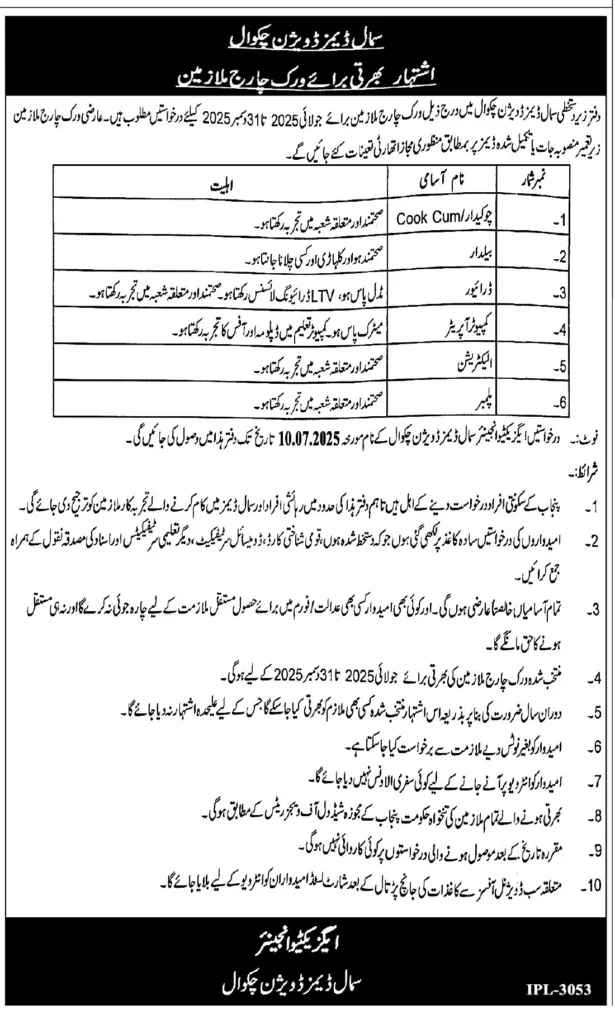 سمال ڈیمز ڈویژن چکوال
اشتہار بھرتی برائے ورک چارج ملازمین
دفتر زیر دستخطی سمال ڈیمز ڈویژن چکوال میں درج ذیل ورک چارج ملازمین برائے جولائی 2025 تا 31 دسمبر 2025 کیلئے درخواستیں مطلوب ہیں۔ عارضی ورک چارج ملازمین
زیر تعمیر منصوبہ جات یا تکمیل شدہ ڈیمز پر بمطابق منظوری مجاز اتھارٹی تعینات کئے جائیں گے۔
نمبر شمار نام آسامی اہلیت
1۔ چوکیدار/Cook Cum صحتمند اور متعلقہ شعبہ میں تجربہ رکھتا ہو۔
2۔ بیلدار صحتمند ہو اور کلہاڑی اور کسی چلانا جانتا ہو۔
3۔ ڈرائیور مڈل پاس ہو، LTV ڈرائیونگ لائسنس رکھتا ہو۔ صحتمند اور متعلقہ شعبہ میں تجربہ رکھتا ہو۔
4۔ کمپیوٹر آپریٹر میٹرک پاس ہو۔ کمپیوٹر تعلیم میں ڈپلومہ اور آفس کا تجربہ رکھتا ہو۔
5۔ الیکٹریشن صحتمند اور متعلقہ شعبہ میں تجربہ رکھتا ہو۔
6۔ پلمبر صحتمند اور متعلقہ شعبہ میں تجربہ رکھتا ہو۔
نوٹ:۔ درخواستیں ایگزیکٹیو انجینئر سمال ڈیمز ڈویژن چکوال کے نام مورخہ 10.07.2025 تاریخ تک دفتر ہذا میں وصول کی جائیں گی۔
شرائط:۔
1۔ پنجاب کے سکونتی افراد درخواست دینے کے اہل ہیں تاہم دفتر ہذا کی حدود میں رہائشی افراد اور سمال ڈیمز میں کام کرنے والے تجربہ کار ملازمین کو ترجیح دی جائے گی۔
2۔ امیدواروں کی درخواستیں سادہ کاغذ پر لکھی گئی ہوں جو کہ دستخط شدہ ہوں، قومی شناختی کارڈ، ڈومیسائل سرٹیفکیٹ، دیگر تعلیمی سرٹیفکیٹس اور اسناد کی مصدقہ نقول کے ہمراہ
جمع کرائیں۔
3۔ تمام آسامیاں خالصتاً عارضی ہوں گی۔ اور کوئی بھی امیدوار کسی بھی عدالت/فورم میں برائے حصول مستقل ملازمت کے لیے چارہ جوئی نہ کرے گا اور نہ ہی مستقل
ہونے کا حق مانگے گا۔
4۔ منتخب شدہ ورک چارج ملازمین کی بھرتی برائے جولائی 2025 تا 31 دسمبر 2025 کے لیے ہوگی۔
5۔ دوران سال ضرورت کی بنا پر بذریعہ اس اشتہار منتخب شدہ کسی بھی ملازم کو بھرتی کیا جاسکے گا جس کے لیے علیحدہ اشتہار نہ دیا جائے گا۔
6۔ امیدوار کو بغیر نوٹس دیے ملازمت سے برخواست کیا جاسکتا ہے۔
7۔ امیدوار کو انٹرویو پر آنے جانے کے لیے کوئی سفری الاؤنس نہیں دیا جائے گا۔
8۔ بھرتی ہونے والے تمام ملازمین کی تنخواہ حکومت پنجاب کے مجوزہ شیڈول آف ویجز ریٹس کے مطابق ہوگی۔
9۔ مقررہ تاریخ کے بعد موصول ہونے والی درخواستوں پر کوئی کاروائی نہیں ہوگی۔
10۔ متعلقہ سب ڈویژنل آفسز سے کاغذات کی جانچ پڑتال کے بعد شارٹ لسٹڈ امیدواران کو انٹرویو کے لیے بلایا جائے گا۔
ایگزیکٹیو انجینئر
سمال ڈیمز ڈویژن چکوال
IPL-3053